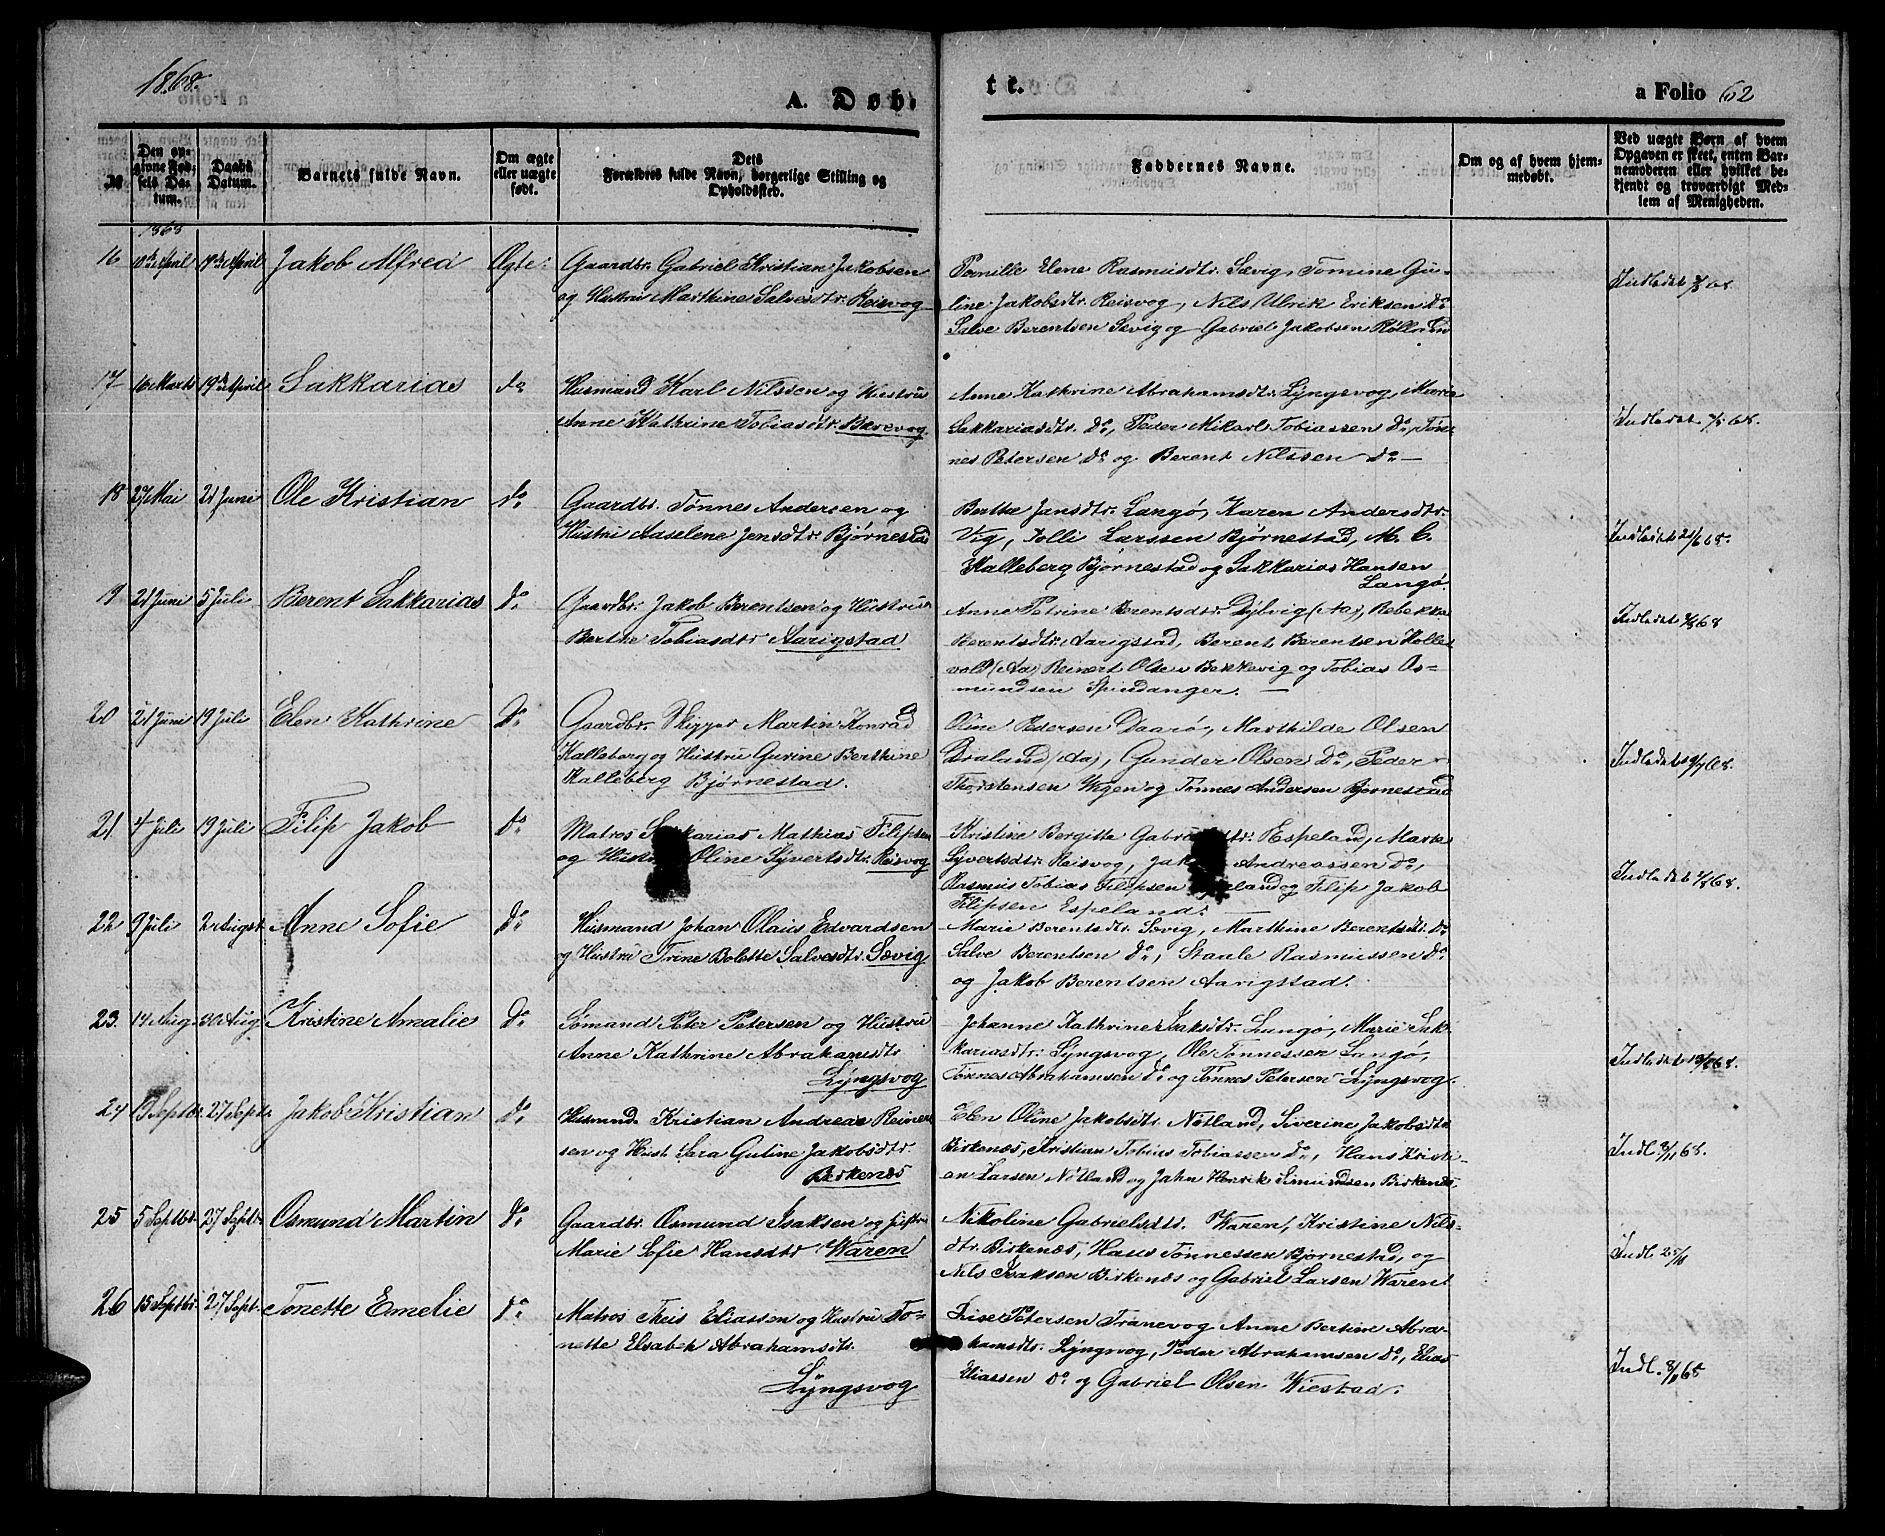 1868.
A. Døb-
te.
a Folio 62
№
Den op-
givne Fød-
sels Da-
tum.
Daabs
Datum.
Barnets fulde Navn.
Om ægte
eller uægte
født.
Dets
Forældres fulde Navn, borgerlige Stilling og
Opholdssted.
Faddernes Navne.
Om og af hvem hjem-
medøbt.
Ved uægte Børn af hvem
Opgaven er skeet, enten Bar-
nemoderen eller hvilket be-
kjendt og troværdigt Med-
lem af Menigheden.
1868
16 April April Jakob Alfred Ægte: Gaardbr. Gabriel Kristian Jakobsen
og Hustru Marthine Salvesdtr. Reisvog
Pernille Elene Rasmusdtr. Sævig, Tomine Gu-
line Jakobsdtr. Reisvog, Nils Ulrik Eriksen Do
Salve Berentsen Sevig og Gabriel Jakobsen
Indledet
17 16 Marts 19de April Sakkarias do Husmand Karl Nilssen og Hustru
Anne Kathrine Tobiasdtr. Barevog
Anne Kathrine Abrahamsdtr. Lÿngsvog, Marie
Sakkariasdtr. Do, Peder Mikael Tobiassen Do, Tøn-
nes Petersen Do og Berent Nilssen Do —
Indledet 68.
18 27 Mai 21 Juni Ole Kristian do Gaardbr. Tønnes Andersen og
Hustru Aaselene Jensdtr. Bjørnestad
Berthe Jansdtr. Langø, Karen Andersdtr.
Vig, Tolli Larssen Bjørnestad, M. C.
Kalleberg Bjørnestad og Sakkarias Hansen
Langø.
Indledet 21/6 68.
19 21 Juni 5 Juli Berent Sakkarias Do Gaardbr. Jakob Berentsen og Hustru
Berthe Tobiasdtr. Aarigstad
Anne Petrine Berentsdtr. Dÿbvig (Aa), Rebekka
Berentsdtr. Aarigstad, Berent Berentsen Holle-
vold (Aa) Reinert Olsen Bekkevig og Tobias Os-
mundsen Spindanger. —
Indledet 68
20 21 Juni 19 Juli Elen Kathrine Do Gaardbr. Skipper Martin Konrad
Kalleberg og Hustru Gurine Berthine
Kalleberg Bjørnestad.
Oline Pedersen Daarø, Marthilde Olsen
Braland (Aa), Gunder Olsen Do, Peder
Thorstensen Vigen og Tønnes Andersen Bjørnestad
Indledet 19/7 68.
21 4 Juli 19 Juli Filip Jakob Do Matros Sakkarias Mathias Filipsen
og Hustru Oline Sÿvertsdtr. Reisvog
Kristine Bergitte Espeland, Marie
Sÿvertsdtr. Reisvog, Andreassen Do,
Rasmus Tobias Filipsen og Filip Jakob
Filipsen Espeland. —
Indledet 68.
22 9 Juli 2 Augst. Anne Sofie Do Husmand Johan Olaus Edvardsen
og Hustru Trine Bolette Salvesdtr. Sævig
Marie Berentsdtr. Sævig, Marthine Berentsdtr. Do
Salve Berentsen Do, Staale Rasmussen Do
og Jakob Berentsen Aarigstad.
23. 14 Aug. 30 Aug. Kristine Amalie Do Sømand Peter Petersen og Hustru
Anne Kathrine Abrahamsdtr.
Lÿngsvog
Johanne Kathrine Isaksdtr. Langø, Marie Sak-
kariasdtr. Lÿngsvog, Ole Tønnessen Langø,
Tønnes Abrahamsen Do og Tønnes Petersen Lÿngsvog.
Indledet 68.
24 Septbr. 27 Septr. Jakob Kristian Do Husmnd. Kristian Andreas Reinert-
sen og Hust. Sara Guline Jakobsdtr.
Birkenæs
Elen Oline Jakobsdtr. Nøtland, Siverine Jakobsdtr.
Birkenæs, Kristian Tobias Tobiassen Do, Hans Kristi-
an Larsen Nøtland og Jahn Henrik Simundsen Birkenæs.
Indl. 8/11 68.
25 5 Septbr. 27 Septr. Osmund Martin Do Gaardbr. Osmund Isaksen og Hustru
Marie Sofie Hansdtr. Waren
Nikoline Gabrielsdtr. Waren, Kristine Nils-
dtr. Birkenæs, Hans Tønnessen Bjørnestad, og
Nils Isaksen Birkenæs og Gabriel Larsen Waren.
Indl.
26 15 Septbr. 27 Sept. Tonette Emelie Do Matros Theis Eliassen og Hustru To-
nette Elsabeh Abrahamsdtr.
Lÿngsvog
Lise Petersen Tranevog Anne Bertine Abra-
hamsdtr. Lÿngsvog, Peder Abrahamsen Do, Elias
Eliassen Do og Gabriel Olsen Wiestad.
Indl. 8/11 68